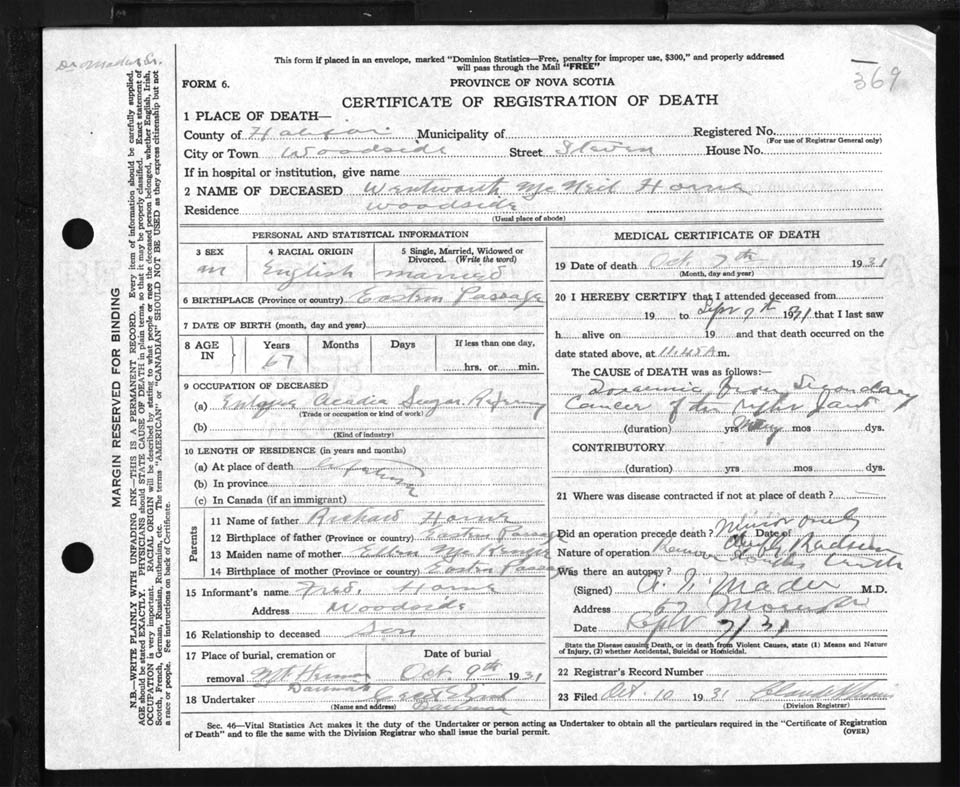 Dr Mader Sr.
This form if placed in an envelope, marked "Dominion Statistics—Free, penalty for improper use, $300," and properly addressed
will pass through the Mail "FREE"
369
FORM 6.
PROVINCE OF NOVA SCOTIA
CERTIFICATE OF REGISTRATION OF DEATH
MARGIN RESERVED FOR BINDING
N.B.—WRITE PLAINLY WITH UNFADING INK—THIS IS A PERMANENT RECORD. Every item of information should be carefully supplied.
AGE should be stated EXACTLY. PHYSICIANS should STATE CAUSE OF DEATH in plain terms, so that it may be properly classified. Exact statement of
OCCUPATION is very important. RACIAL ORIGIN will be described by stating to what people or race the deceased person belonged, whether English, Irish,
Scotch, French, German, Russian, Ruthenian, etc. The terms "AMERICAN" or "CANADIAN" SHOULD NOT BE USED as they express citizenship but not
a race or people. See instructions on back of Certificate.
1 PLACE OF DEATH—
County of Halifax Municipality of Registered No.
(For use of Registrar General only)
City or Town Woodside Street Steven House No.
If in hospital or institution, give name
2 NAME OF DECEASED Wentworth McNeil Horne
Residence Woodside
(Usual place of abode)
PERSONAL AND STATISTICAL INFORMATION
3 SEX 4 RACIAL ORIGIN 5 Single, Married, Widowed or
Divorced. (Write the word)
m English married
6 BIRTHPLACE (Province or country) Eastern Passage
7 DATE OF BIRTH (month, day and year)
8 AGE IN Years Months Days If less than one day,
67 hrs. or min.
9 OCCUPATION OF DECEASED
(a) Acadia Sugar Refinery
(Trade or occupation or kind of work)
(b)
(Kind of industry)
10 LENGTH OF RESIDENCE (in years and months)
(a) At place of death
(b) In province
(c) In Canada (if an immigrant)
Parents
11 Name of father Richard Horne
12 Birthplace of father (Province or country) Eastern Passage
13 Maiden name of mother Ellen
14 Birthplace of mother (Province or country) Eastern Passage
15 Informant's name Fred. Horne
Address Woodside
16 Relationship to deceased Son
17 Place of burial, cremation or
removal Mt Hermon Date of burial Oct. 9th 1931
18 Undertaker
(Name and address)
MEDICAL CERTIFICATE OF DEATH
19 Date of death Oct 7th 1931
(Month, day and year)
20 I HEREBY CERTIFY that I attended deceased from
19 to Sept 7th 1931 that I last saw
h alive on 19 and that death occurred on
date stated above, at 11.45 A m.
The CAUSE OF DEATH was as follows:
Toxaemia from Secondary
Cancer of the right Jaw
(duration) yrs mos dys.
CONTRIBUTORY
(duration) yrs mos dys.
21 Where was disease contracted if not at place of death?
Did an operation precede death? Minor only Date of
Nature of operation
Was there an autopsy?
(Signed) A. I. Mader M.D.
Address 67 Morris St
Date Sept 7/31
State the Disease causing Death, or in death from Violent Causes, state (1) Means and Nature
of Injury, (2) whether Accidental, Suicidal or Homicidal.
22 Registrar's Record Number
23 Filed Oct. 10 1931
(Division Registrar)
Sec. 46—Vital Statistics Act makes it the duty of the Undertaker or person acting as Undertaker to obtain all the particulars required in the "Certificate of Registration
of Death" and to file the same with the Division Registrar who shall issue the burial permit.
(OVER)